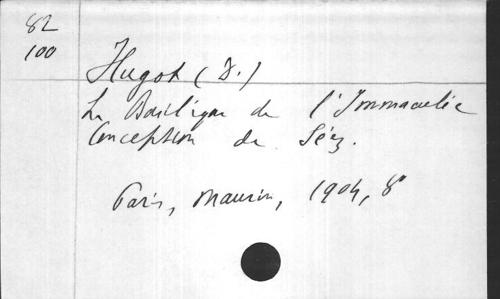 82
100
Hugot (D.)
La Basilique de l'Immaculée
Conception de Séez.
Paris, Maurin, 1904, 8°